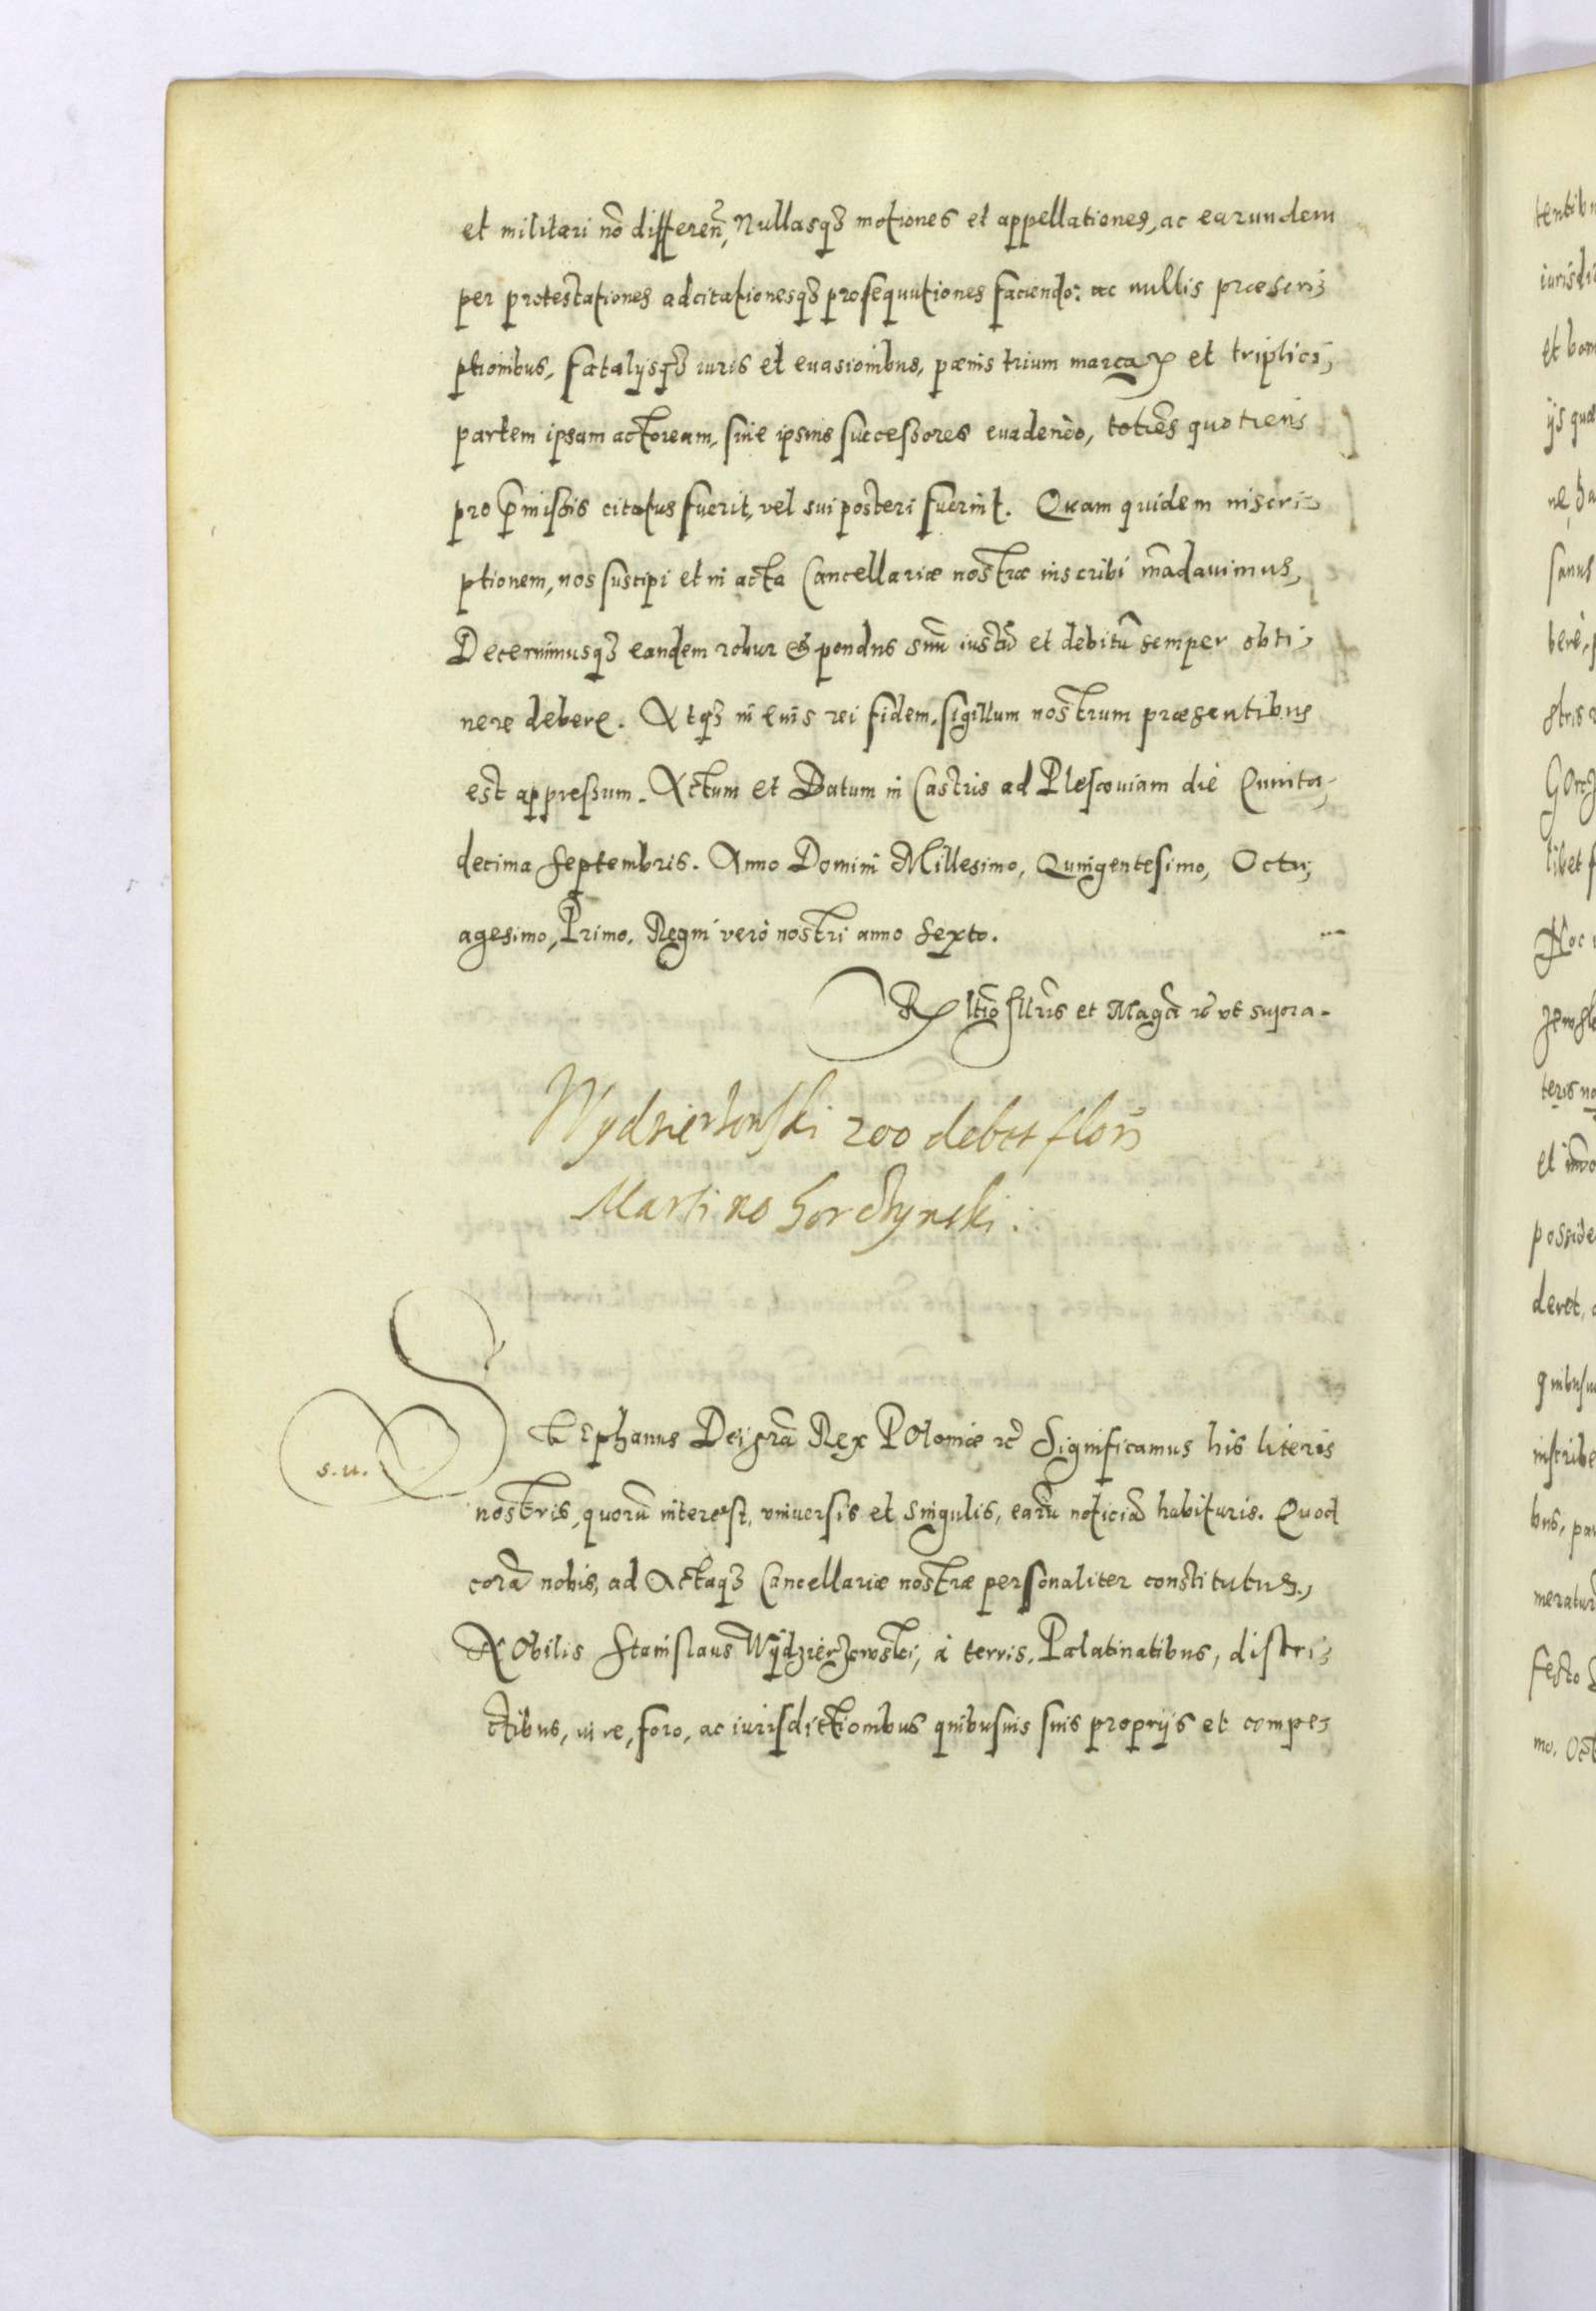 et militari nõ differeñ, Nullasqȝ motiones et appellationes, ac earundem
per protestationes adcitationesqȝ prosequutiones faciendo: ac nullis præscri-
ptionibus, fatalijsqȝ iuris et euasionibus, pœnis trium marcaꝝ et triplici,
partem ipsam actoream, siue ipsius successores euadendo, toties quotiens
pro p̃missis citatus fuerit, vel sui posteri fuerint. Quam quidem inscri-
ptionem, nos suscipi et in acta Cancellariæ nostræ inscribi mãdauimus,
Decernimusqȝ eandem robur & pondus suũ iustũ et debitũ semper obti-
nere debere. Atqȝ in euis rei fidem, sigillum nostrum præsentibus
est appressum. Actum et Datum in Castris ad Plescouiam die Quinta,
decima Septembris. Anno Domini Millesimo, Quingentesimo, Octu,
agesimo, Primo. Regni verò nostri anno Sexto.
Rx̃ltio Illris et Magci rc̃ vt supra.
Wydzierzowski 200 debet flor̃
Martino Gorchynski.
Stephanus Dei grã Rex Poloniæ rc̃ Significamus his literis
s.u.
nostris, quorũ interest, vniuersis et singulis, earũ noticiã habituris. Quod
corã nobis, ad Actaqȝ Cancellariæ nostræ personaliter constitutus,
Nobilis Stanislaus Wydzierzewski, à terris, Palatinatibus, distri-
ctibus, iure, foro, ac iurisdictionibus quibusuis suis proprijs et compe-